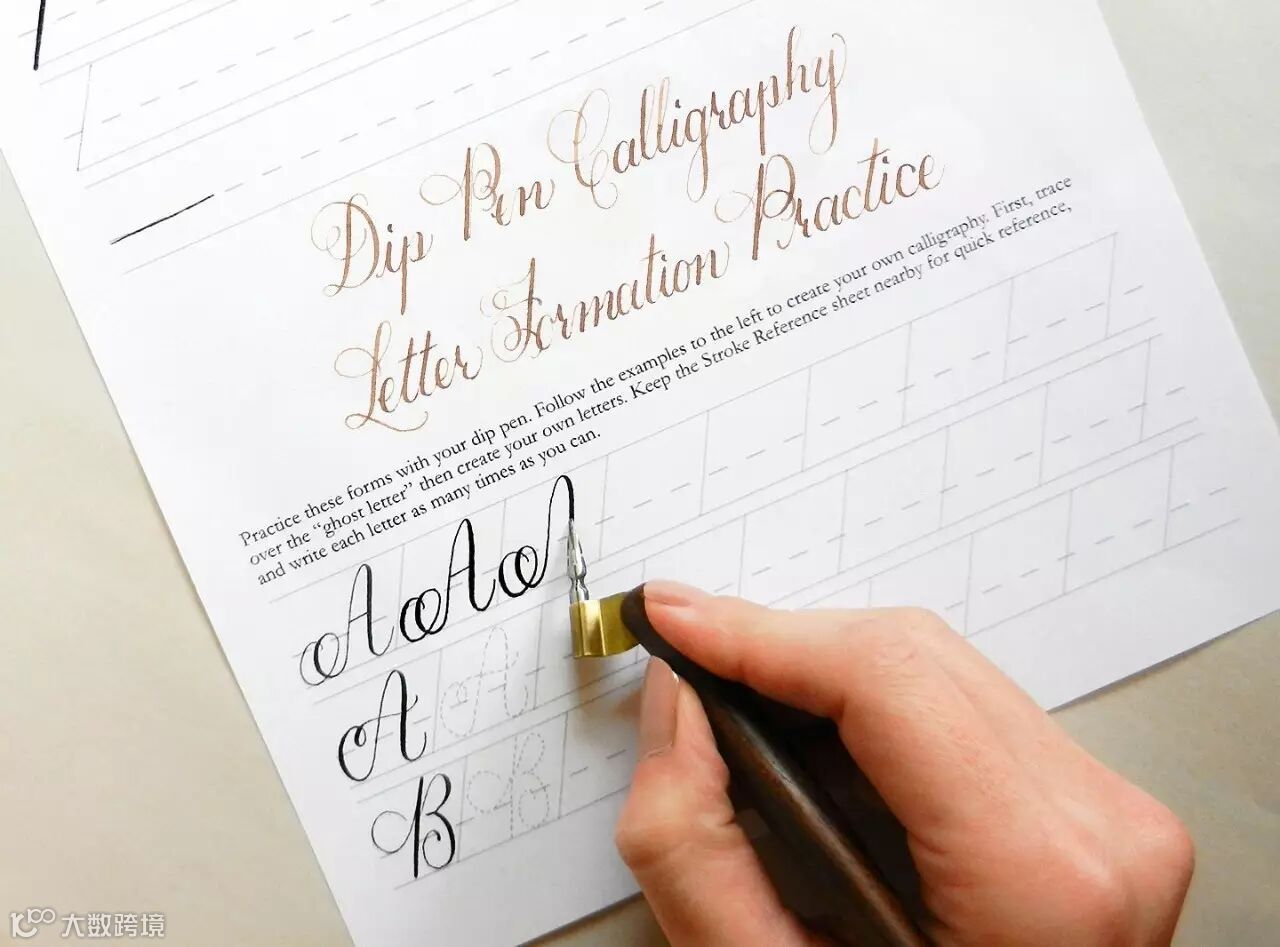 Dip Pen Calligraphy
Letter Formation Practice
Practice these forms with your dip pen. Follow the examples to the left to create your own calligraphy. First, trace
over the “ghost letter” then create your own letters. Keep the Stroke Reference sheet nearby for quick reference,
and write each letter as many times as you can.
A A A
A A
B B
大数跨境